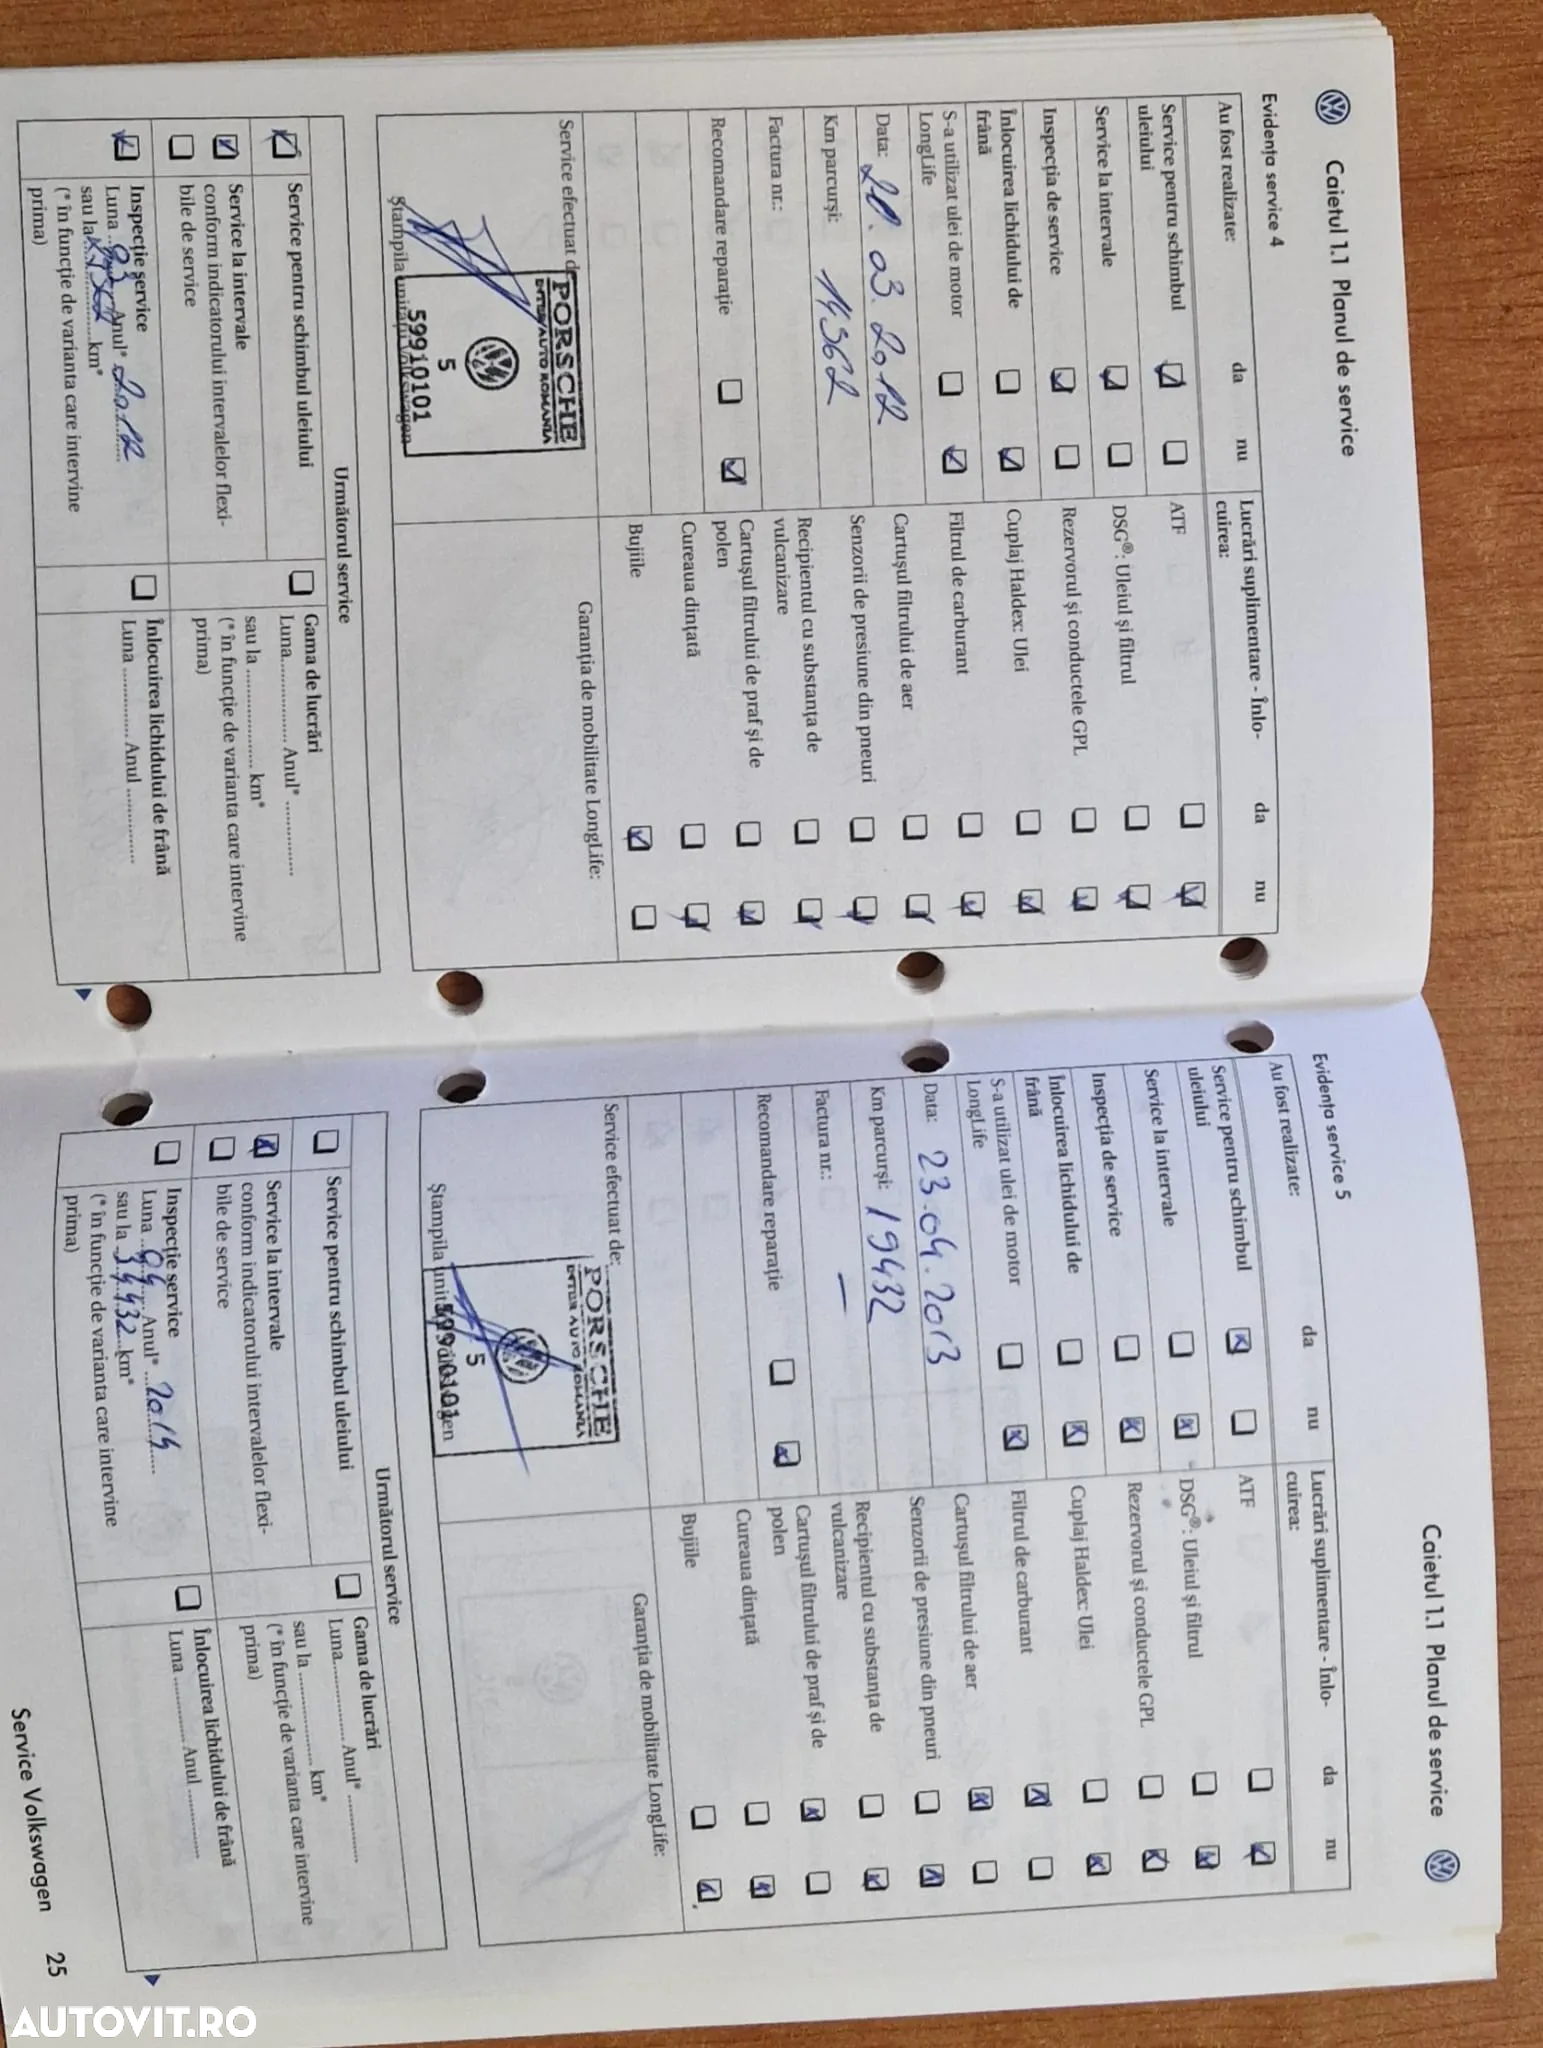 Caietul 1.1 Planul de service
Evidența service 4
Au fost realizate: da nu
Service pentru schimbul
uleiului
Service la intervale
Inspecția de service
Înlocuirea lichidului de
frână
S-a utilizat ulei de motor
LongLife
Data: 20.03.2012
Km parcurși: 14362
Factura nr.:
Recomandare reparație
Lucrări suplimentare - Înlo-
cuirea: da nu
ATF
DSG®: Uleiul și filtrul
Rezervorul și conductele GPL
Cuplaj Haldex: Ulei
Filtrul de carburant
Cartușul filtrului de aer
Senzorii de presiune din pneuri
Recipientul cu substanța de
vulcanizare
Cartușul filtrului de praf și de
polen
Cureaua dințată
Bujiile
Service efectuat de
PORSCHE
INTER AUTO ROMANIA
5
59910101
Ștampila unității Volkswagen
Garanția de mobilitate LongLife:
Următorul service
Service pentru schimbul uleiului
Service la intervale
conform indicatorului intervalelor flexi-
bile de service
Inspecție service
Luna 03 Anul* 2012
sau la km*
(* în funcție de varianta care intervine
prima)
Gama de lucrări
Luna.................. Anul* ..................
sau la .................. km*
(* în funcție de varianta care intervine
prima)
Înlocuirea lichidului de frână
Luna ............... Anul ...............
Caietul 1.1 Planul de service
Evidența service 5
Au fost realizate: da nu
Service pentru schimbul
uleiului
Service la intervale
Inspecția de service
Înlocuirea lichidului de
frână
S-a utilizat ulei de motor
LongLife
Data: 23.04.2013
Km parcurși: 19432
Factura nr.: —
Recomandare reparație
Lucrări suplimentare - Înlo-
cuirea: da nu
ATF
DSG®: Uleiul și filtrul
Rezervorul și conductele GPL
Cuplaj Haldex: Ulei
Filtrul de carburant
Cartușul filtrului de aer
Senzorii de presiune din pneuri
Recipientul cu substanța de
vulcanizare
Cartușul filtrului de praf și de
polen
Cureaua dințată
Bujiile
Service efectuat de:
PORSCHE
INTER AUTO ROMANIA
5
59910101
Ștampila unității Volkswagen
Garanția de mobilitate LongLife:
Următorul service
Service pentru schimbul uleiului
Service la intervale
conform indicatorului intervalelor flexi-
bile de service
Inspecție service
Luna 04 Anul* 2014
sau la 34432 km*
(* în funcție de varianta care intervine
prima)
Gama de lucrări
Luna.................. Anul* ..................
sau la .................. km*
(* în funcție de varianta care intervine
prima)
Înlocuirea lichidului de frână
Luna ............... Anul ...............
Service Volkswagen 25
AUTOVIT.RO